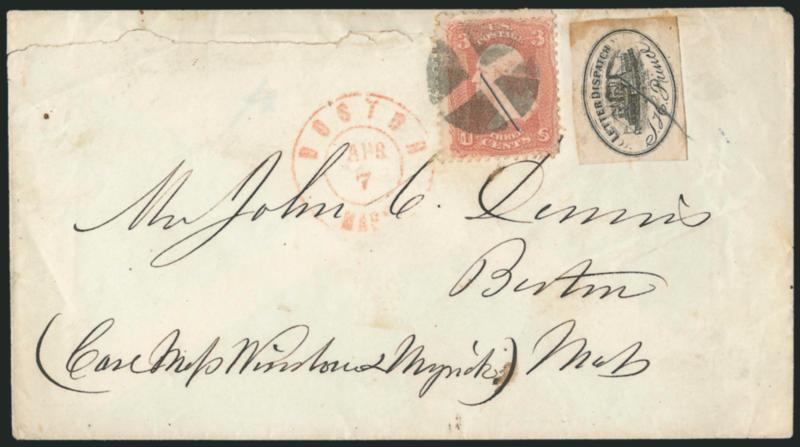 U.S.
POSTAGE
3 3
THREE
CENTS
U S
LETTER DISPATCH
J.H. Prince
BOSTON
APR
7
MASS
Mr John C. Dennis
Boston
(Care Mess Winslow & Myrick) Mass